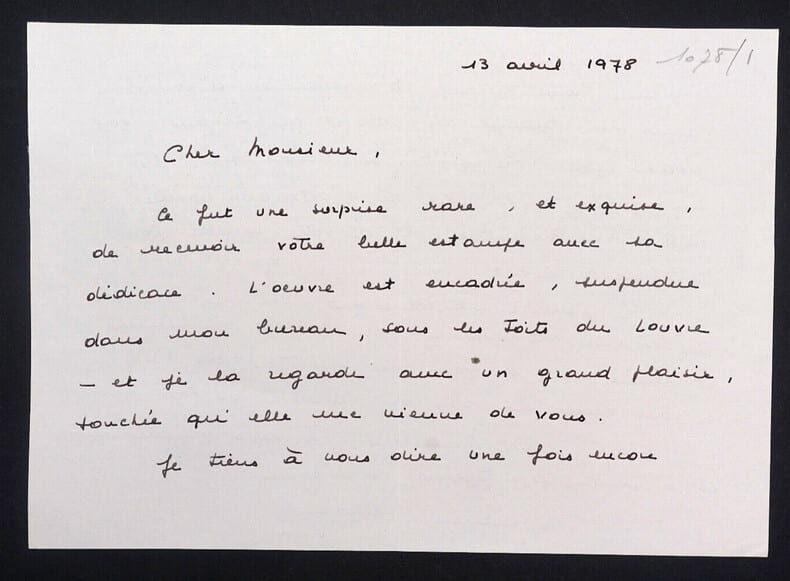 13 avril 1978 1078/1
Cher Monsieur,
Ce fut une surprise rare, et exquise,
de recevoir votre belle estampe avec sa
dédicace. L'oeuvre est encadrée, suspendue
dans mon bureau, sous les toits du Louvre
— et je la regarde avec un grand plaisir,
touchée qu'elle me vienne de vous.
Je tiens à vous dire une fois encore